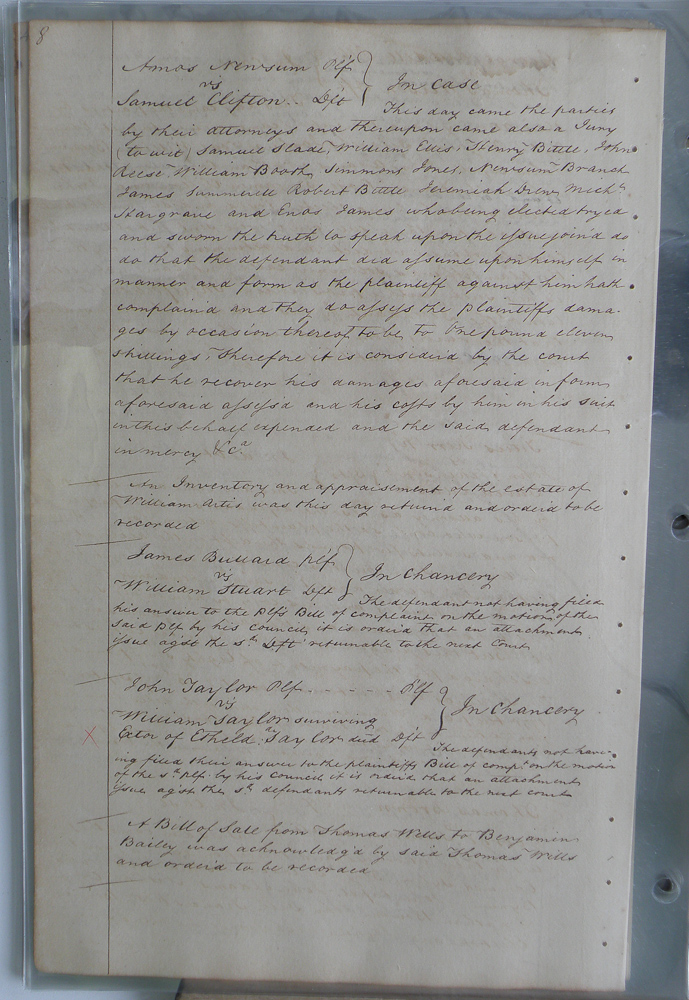 8
Amos Newsum Plf
vs
Samuel Clifton .. Deft
In Case
This day came the parties
by their attorneys and thereupon came also a Jury
(to wit) Samuel Slade, William Ellis, Henry Bittle, John
Reese, William Booth, Simmons Jones, Newsum Branch
James Summerell Robert Bittle Jeremiah Drew Mich.l
Hargrave and Enos James who being elected tryed
and sworn the truth to speak upon the issue join'd do
do that the defendant did assume upon himself in
manner and form as the plaintiff against him hath
complain'd and they do assess the plaintiffs dama-
ges by occasion thereof to be to One pound eleven
shillings, Therefore it is consider'd by the court
that he recover his damages aforesaid in form
aforesaid assess'd and his costs by him in his suit
in this behalf expended and the said defendant
in mercy &c.a
An Inventory and appraisement of the estate of
William Artis was this day return'd and order'd to be
recorded
James Bullard Plf
vs
William Stuart Deft
In Chancery
The defendant not having filed
his answer to the Plfs Bill of complaint on the motion of the
said Plf by his council it is order'd that an attachment
issue ag'st the s.d Deft returnable to the next Court
John Taylor Plf - - - - - Plf
vs
William Taylor surviving
X Exōr of Etheld.a Taylor dec'd Deft
In Chancery
The defendants not hav-
ing filed their answer to the plaintiffs Bill of comp.t on the motion
of the s.d Plf. by his Council it is order'd that an attachment
issue ag'st the s.d defendants returnable to the next court
A Bill of Sale from Thomas Wells to Benjamin
Bailey was acknowledg'd by said Thomas Wills
and order'd to be recorded